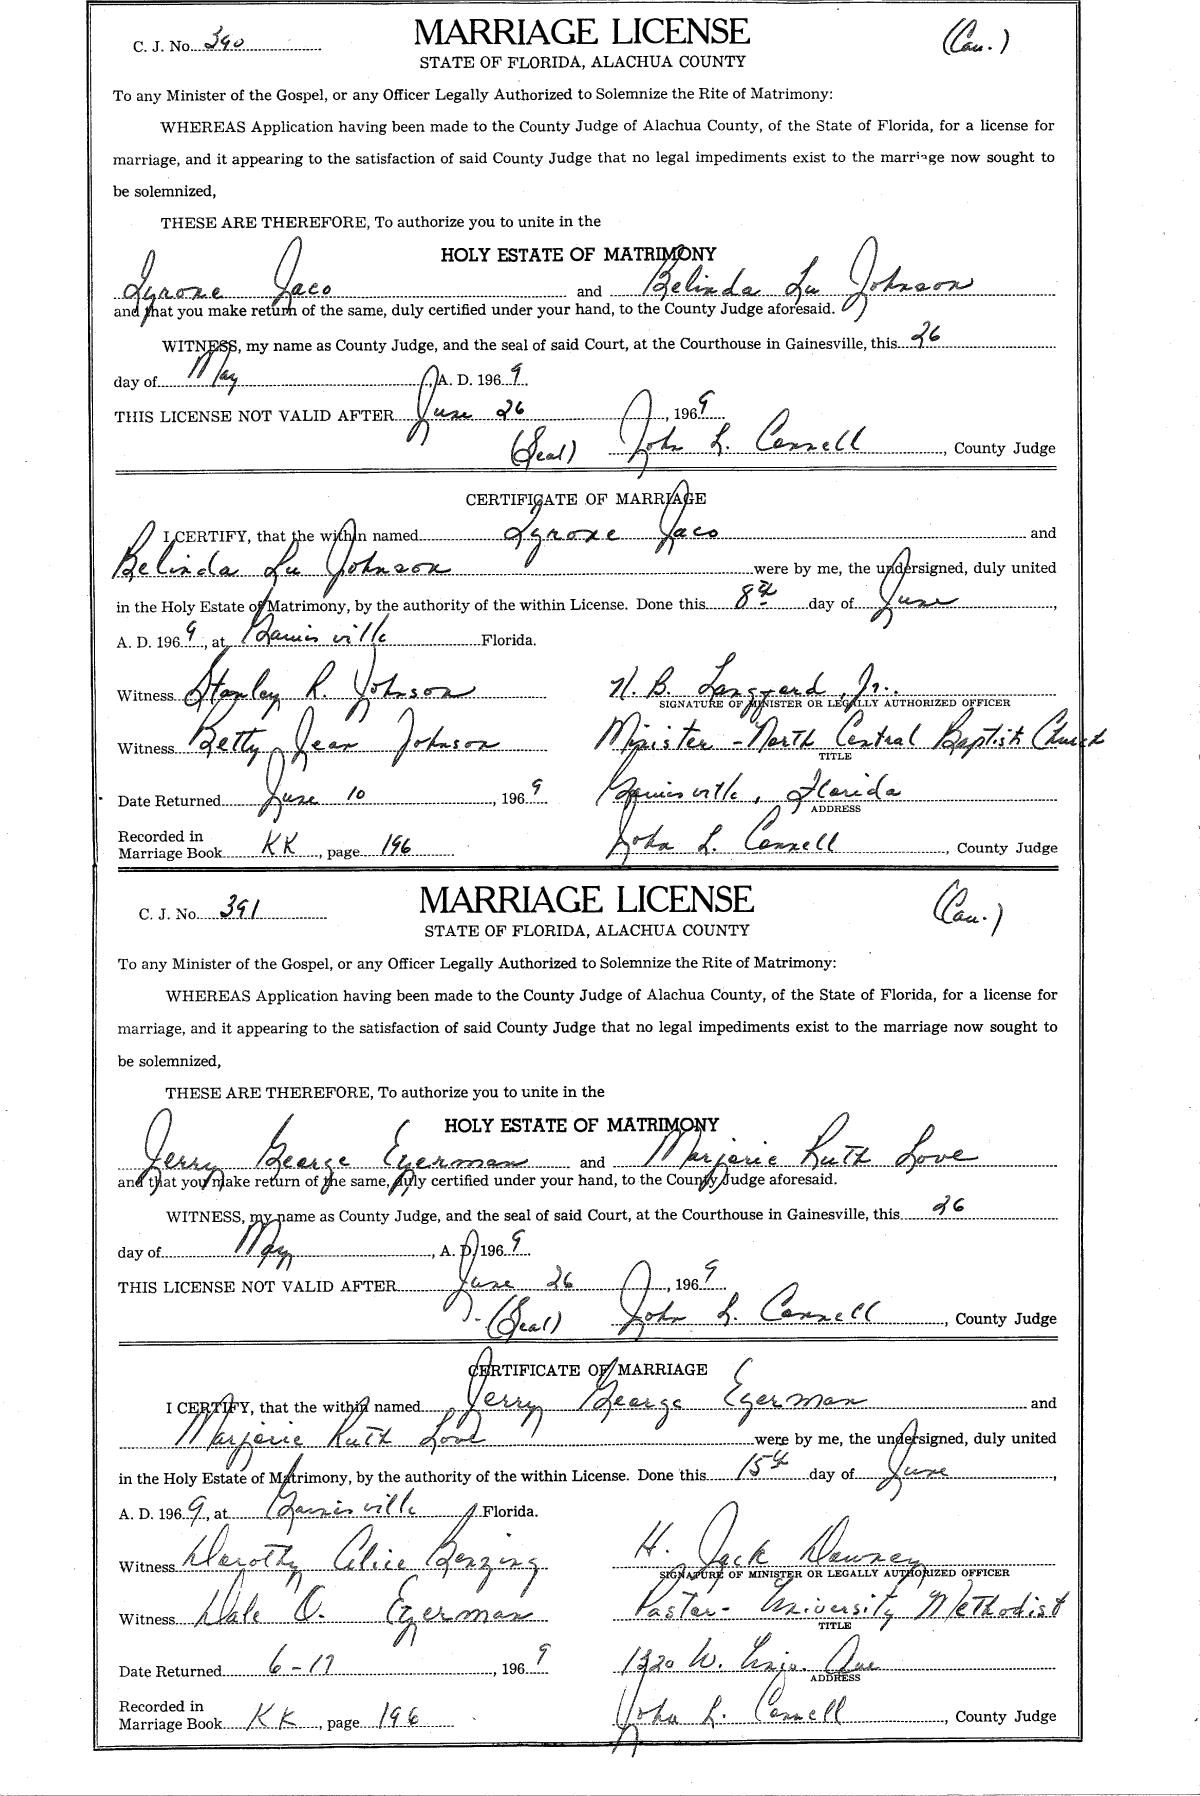 C. J. No. 390 MARRIAGE LICENSE (Cau.)
STATE OF FLORIDA, ALACHUA COUNTY
To any Minister of the Gospel, or any Officer Legally Authorized to Solemnize the Rite of Matrimony:
WHEREAS Application having been made to the County Judge of Alachua County, of the State of Florida, for a license for
marriage, and it appearing to the satisfaction of said County Judge that no legal impediments exist to the marriage now sought to
be solemnized,
THESE ARE THEREFORE, To authorize you to unite in the
HOLY ESTATE OF MATRIMONY
Tyrone Jaco and Belinda Lu Johnson
and that you make return of the same, duly certified under your hand, to the County Judge aforesaid.
WITNESS, my name as County Judge, and the seal of said Court, at the Courthouse in Gainesville, this 26
day of May, A. D. 1969.
THIS LICENSE NOT VALID AFTER June 26, 1969
(Seal) John L. Connell, County Judge
CERTIFICATE OF MARRIAGE
I CERTIFY, that the within named Tyrone Jaco and
Belinda Lu Johnson were by me, the undersigned, duly united
in the Holy Estate of Matrimony, by the authority of the within License. Done this 8th day of June,
A. D. 1969, at Gainesville Florida.
Witness Stanley R. Johnson H. B. Langford, Jr.
SIGNATURE OF MINISTER OR LEGALLY AUTHORIZED OFFICER
Witness Betty Jean Johnson Minister - North Central Baptist Church
TITLE
Date Returned June 10, 1969 Gainesville, Florida
ADDRESS
Recorded in
Marriage Book KK, page 196 John L. Connell, County Judge
C. J. No. 391 MARRIAGE LICENSE (Cau.)
STATE OF FLORIDA, ALACHUA COUNTY
To any Minister of the Gospel, or any Officer Legally Authorized to Solemnize the Rite of Matrimony:
WHEREAS Application having been made to the County Judge of Alachua County, of the State of Florida, for a license for
marriage, and it appearing to the satisfaction of said County Judge that no legal impediments exist to the marriage now sought to
be solemnized,
THESE ARE THEREFORE, To authorize you to unite in the
HOLY ESTATE OF MATRIMONY
Jerry George Egerman and Marjorie Ruth Love
and that you make return of the same, duly certified under your hand, to the County Judge aforesaid.
WITNESS, my name as County Judge, and the seal of said Court, at the Courthouse in Gainesville, this 26
day of May, A. D. 1969.
THIS LICENSE NOT VALID AFTER June 26, 1969
(Seal) John L. Connell, County Judge
CERTIFICATE OF MARRIAGE
I CERTIFY, that the within named Jerry George Egerman and
Marjorie Ruth Love were by me, the undersigned, duly united
in the Holy Estate of Matrimony, by the authority of the within License. Done this 15th day of June,
A. D. 1969, at Gainesville, Florida.
Witness Dorothy Alice Benzing H. Jack Downey
SIGNATURE OF MINISTER OR LEGALLY AUTHORIZED OFFICER
Witness Dale O. Egerman Pastor - University Methodist
TITLE
Date Returned 6-17, 1969 1320 W. Univ. Ave
ADDRESS
Recorded in
Marriage Book KK, page 196 John L. Connell, County Judge